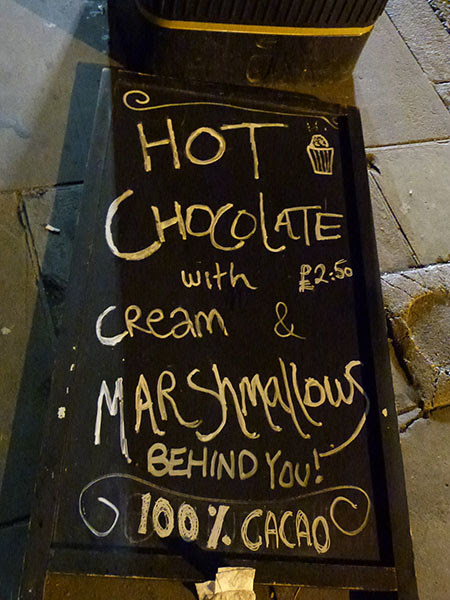 HOT
CHOCOLATE
with £2:50
CReam &
MARShmallows
BEHIND YOU!
100% CACAO